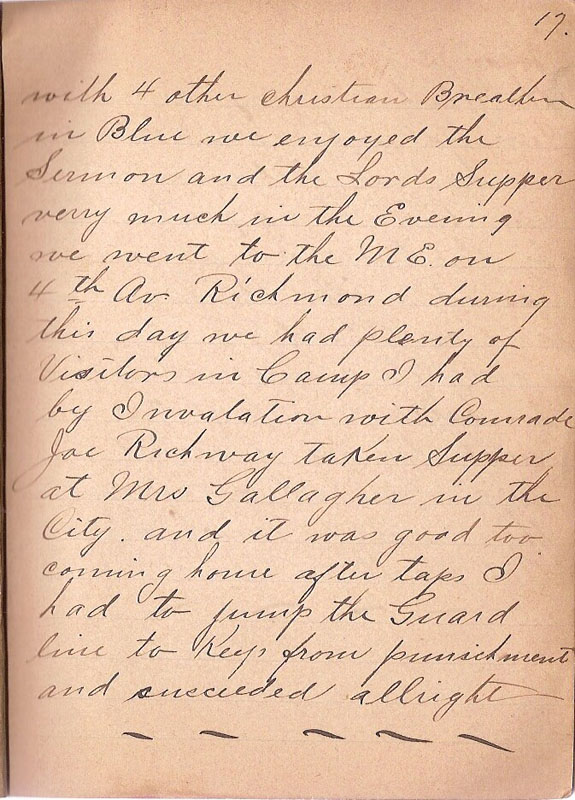 17.
with 4 other christian Breathen
in Blue we enjoyed the
Sermon and the Lords Supper
verry much in the Evening
we went to the M E. on
4th Av. Richmond during
this day we had plenty of
Visitors in Camp I had
by Invalation with Comrade
Joe Richway taken Supper
at Mrs Gallagher in the
City. and it was good too
coming home after taps I
had to jump the Guard
line to Keep from punischment
and succeeded allright